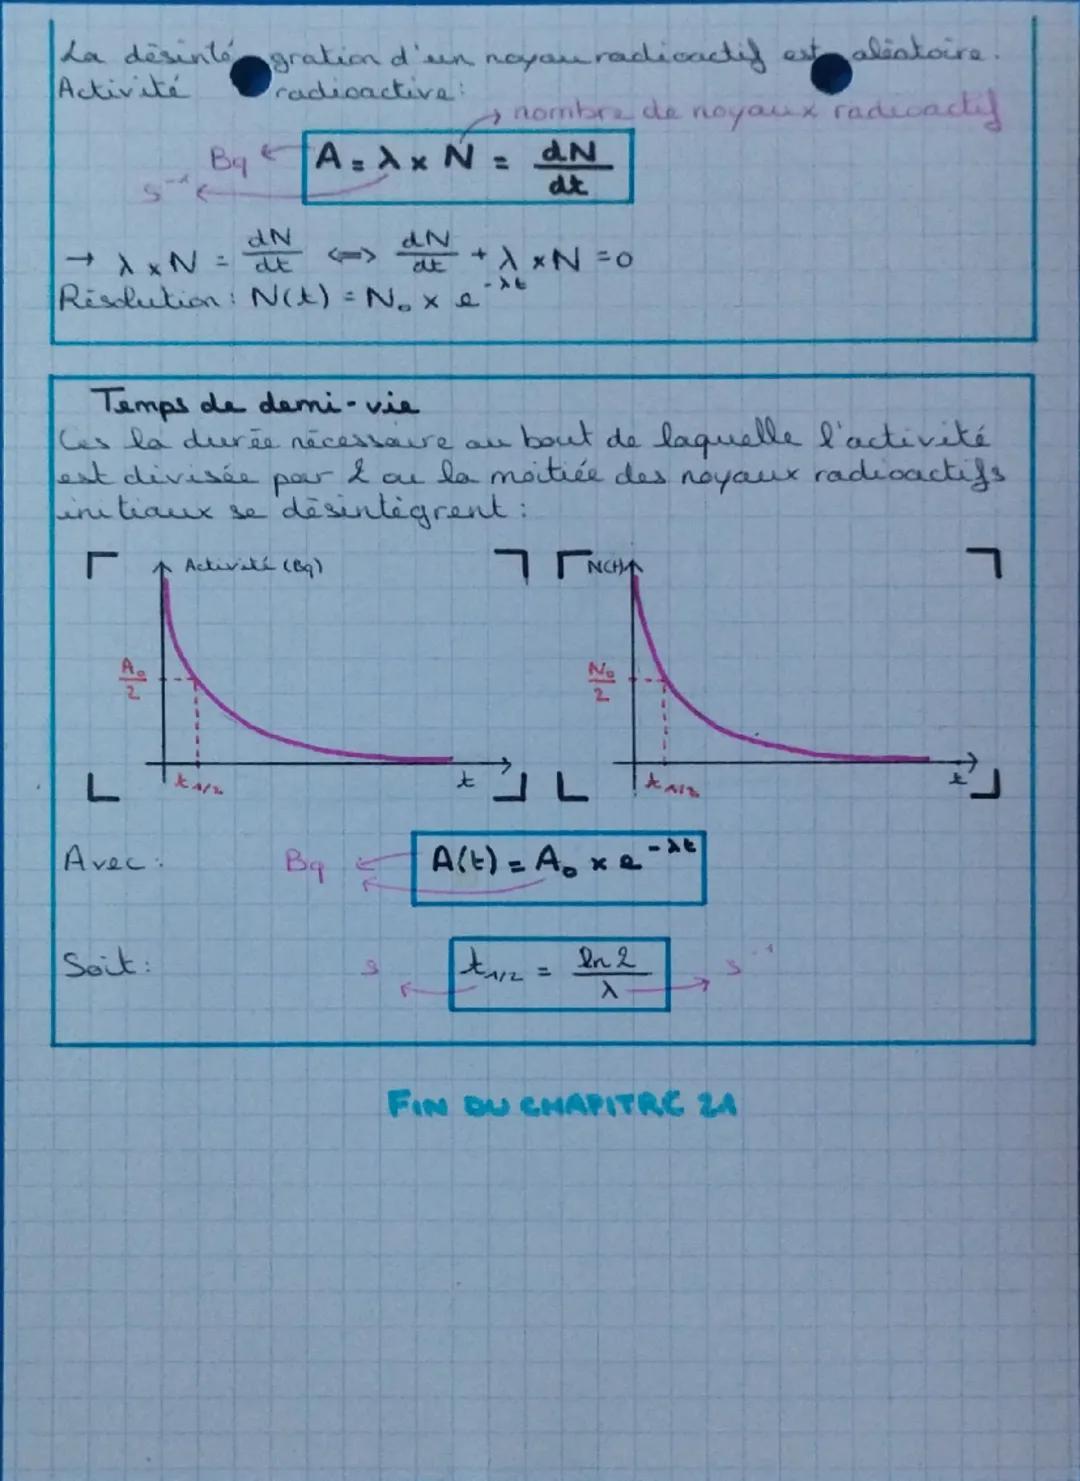 La désintégration d'un noyau radioactif est aléatoire.
Activité radioactive:
→ nombre de noyaux radioactif
Bq ← A = λ × N = dN/dt
s⁻¹ ←
→ λ × N = dN/dt ⟺ dN/dt + λ × N = 0
Résolution : N(t) = N₀ × e^-λt
Temps de demi-vie
Ces la durée nécessaire au bout de laquelle l'activité
est divisée par 2 ou la moitiée des noyaux radioactifs
initiaux se désintègrent :
Activité (Bq)
A₀/2
t 1/2
t
N(t)
N₀/2
t 1/2
t
Avec : Bq ← A(t) = A₀ × e^-λt
Soit : s ← t 1/2 = ln 2/λ → s⁻¹
FIN DU CHAPITRE 21